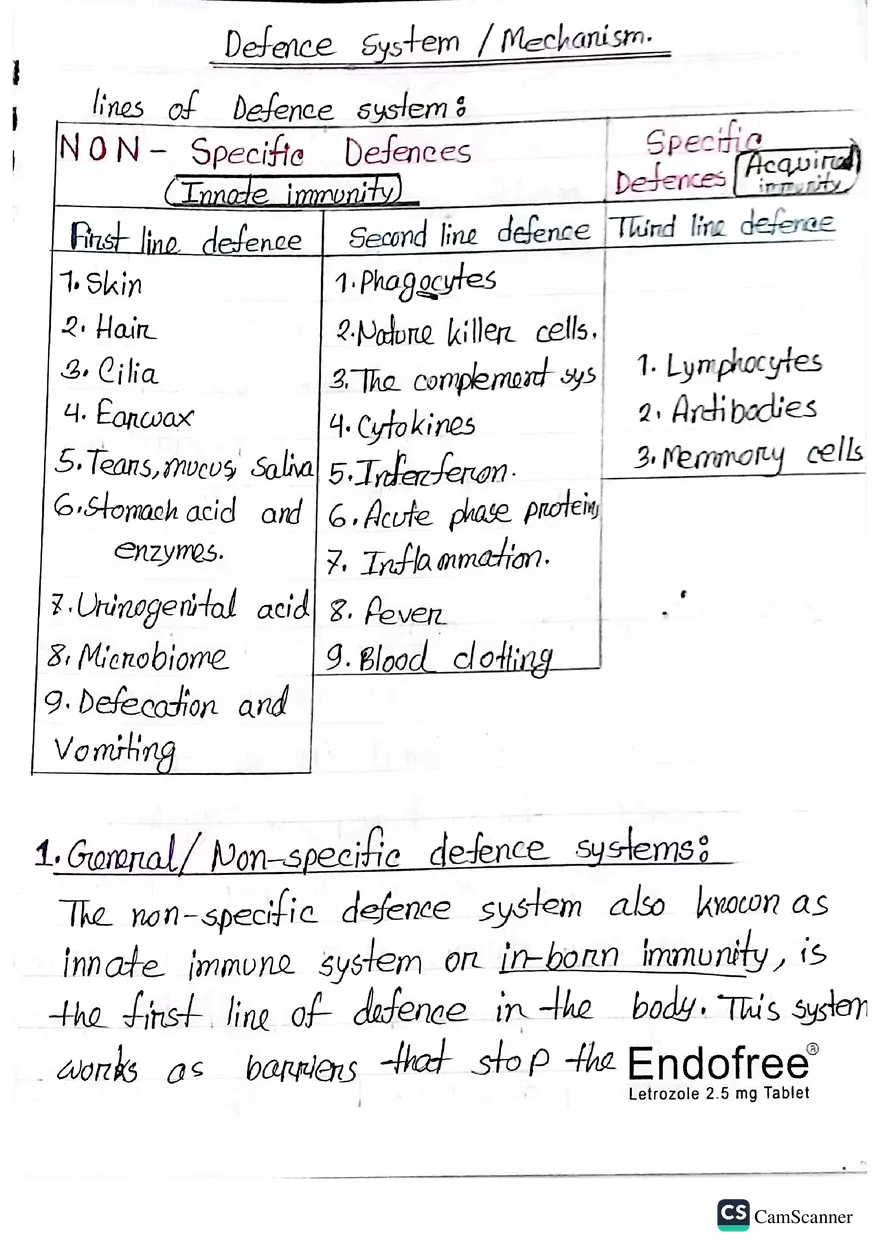 Defence System / Mechanism.
lines of Defence system:
NON - Specific Defences
(Innate immunity)
Specific
Defences (Acquired
immunity)
First line defence
Second line defence
Third line defence
1. Skin
2. Hair
3. Cilia
4. Earwax
5. Tears, mucus, saliva
6. Stomach acid and
enzymes.
7. Urinogenital acid
8. Microbiome
9. Defecation and
Vomiting
1. Phagocytes
2. Nature killer cells.
3. The complement sys
4. Cytokines
5. Interferon.
6. Acute phase protein,
7. Inflammation.
8. Fever
9. Blood clotting
1. Lymphocytes
2. Antibodies
3. Memmory cells
1. General/ Non-specific defence systems:
The non-specific defence system also known as
innate immune system or in-born immunity, is
the first line of defence in the body. This system
works as barriers that stop the Endofree®
Letrozole 2.5 mg Tablet
CS CamScanner